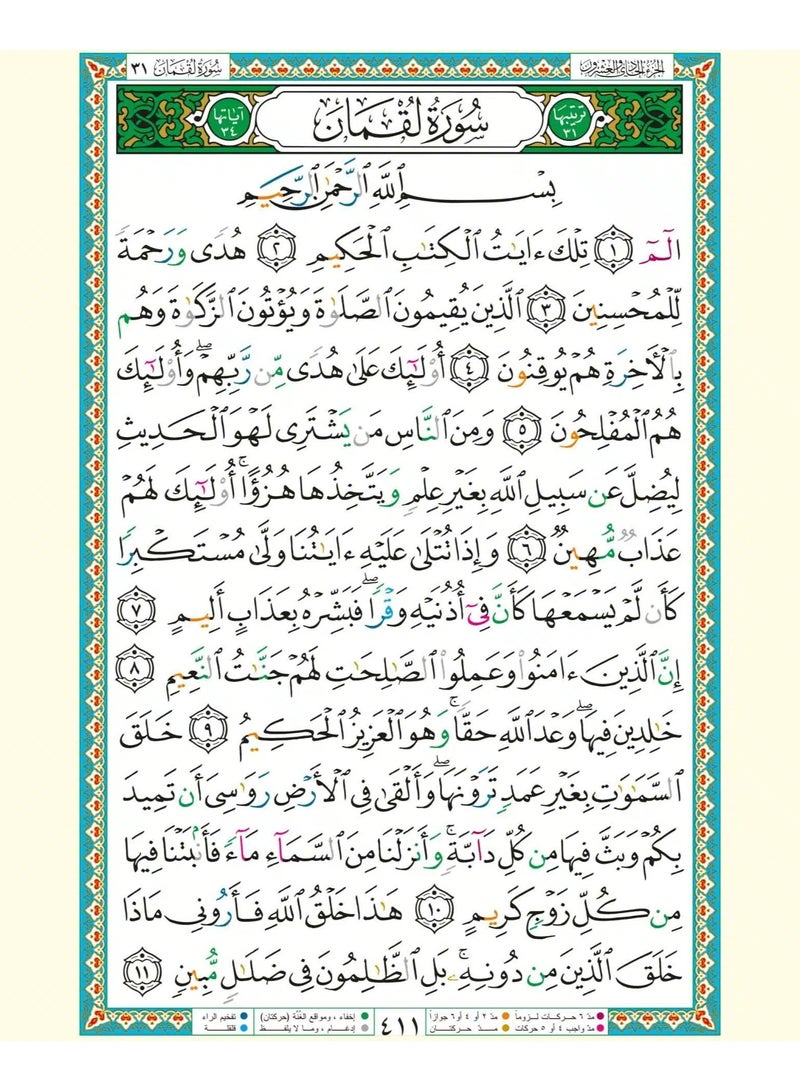 الجزء الحادي والعشرون
سورة لقمان ٣١
ترتيبها ٣١
سُورَةُ لُقْمَانَ
آياتها ٣٤
بِسْمِ ٱللَّهِ ٱلرَّحْمَٰنِ ٱلرَّحِيمِ
الٓمٓ ١ تِلْكَ ءَايَٰتُ ٱلْكِتَٰبِ ٱلْحَكِيمِ ٢ هُدًى وَرَحْمَةً
لِّلْمُحْسِنِينَ ٣ ٱلَّذِينَ يُقِيمُونَ ٱلصَّلَوٰةَ وَيُؤْتُونَ ٱلزَّكَوٰةَ وَهُم
بِٱلْأَخِرَةِ هُمْ يُوقِنُونَ ٤ أُو۟لَٰٓئِكَ عَلَىٰ هُدًى مِّن رَّبِّهِمْ ۖ وَأُو۟لَٰٓئِكَ
هُمُ ٱلْمُفْلِحُونَ ٥ وَمِنَ ٱلنَّاسِ مَن يَشْتَرِى لَهْوَ ٱلْحَدِيثِ
لِيُضِلَّ عَن سَبِيلِ ٱللَّهِ بِغَيْرِ عِلْمٍ وَيَتَّخِذَهَا هُزُوًا ۚ أُو۟لَٰٓئِكَ لَهُمْ
عَذَابٌ مُّهِينٌ ٦ وَإِذَا تُتْلَىٰ عَلَيْهِ ءَايَٰتُنَا وَلَّىٰ مُسْتَكْبِرًا
كَأَن لَّمْ يَسْمَعْهَا كَأَنَّ فِىٓ أُذُنَيْهِ وَقْرًا ۖ فَبَشِّرْهُ بِعَذَابٍ أَلِيمٍ ٧
إِنَّ ٱلَّذِينَ ءَامَنُوا۟ وَعَمِلُوا۟ ٱلصَّٰلِحَٰتِ لَهُمْ جَنَّٰتُ ٱلنَّعِيمِ ٨
خَٰلِدِينَ فِيهَا ۖ وَعْدَ ٱللَّهِ حَقًّا ۚ وَهُوَ ٱلْعَزِيزُ ٱلْحَكِيمُ ٩ خَلَقَ
ٱلسَّمَٰوَٰتِ بِغَيْرِ عَمَدٍ تَرَوْنَهَا ۖ وَأَلْقَىٰ فِى ٱلْأَرْضِ رَوَٰسِىَ أَن تَمِيدَ
بِكُمْ وَبَثَّ فِيهَا مِن كُلِّ دَآبَّةٍ ۚ وَأَنزَلْنَا مِنَ ٱلسَّمَآءِ مَآءً فَأَنۢبَتْنَا فِيهَا
مِن كُلِّ زَوْجٍ كَرِيمٍ ١٠ هَٰذَا خَلْقُ ٱللَّهِ فَأَرُونِى مَاذَا
خَلَقَ ٱلَّذِينَ مِن دُونِهِۦ ۚ بَلِ ٱلظَّٰلِمُونَ فِى ضَلَٰلٍ مُّبِينٍ ١١
مدّ ٦ حركات لزوماً مدّ ٢ أو ٤ أو ٦ جوازاً
مدّ واجب ٤ أو ٥ حركات مدّ حركتان
٤١١
إخفاء، ومواقع الغُنَّة (حركتان) تفخيم الراء
إدغام، وما لا يُلفظ قلقلة